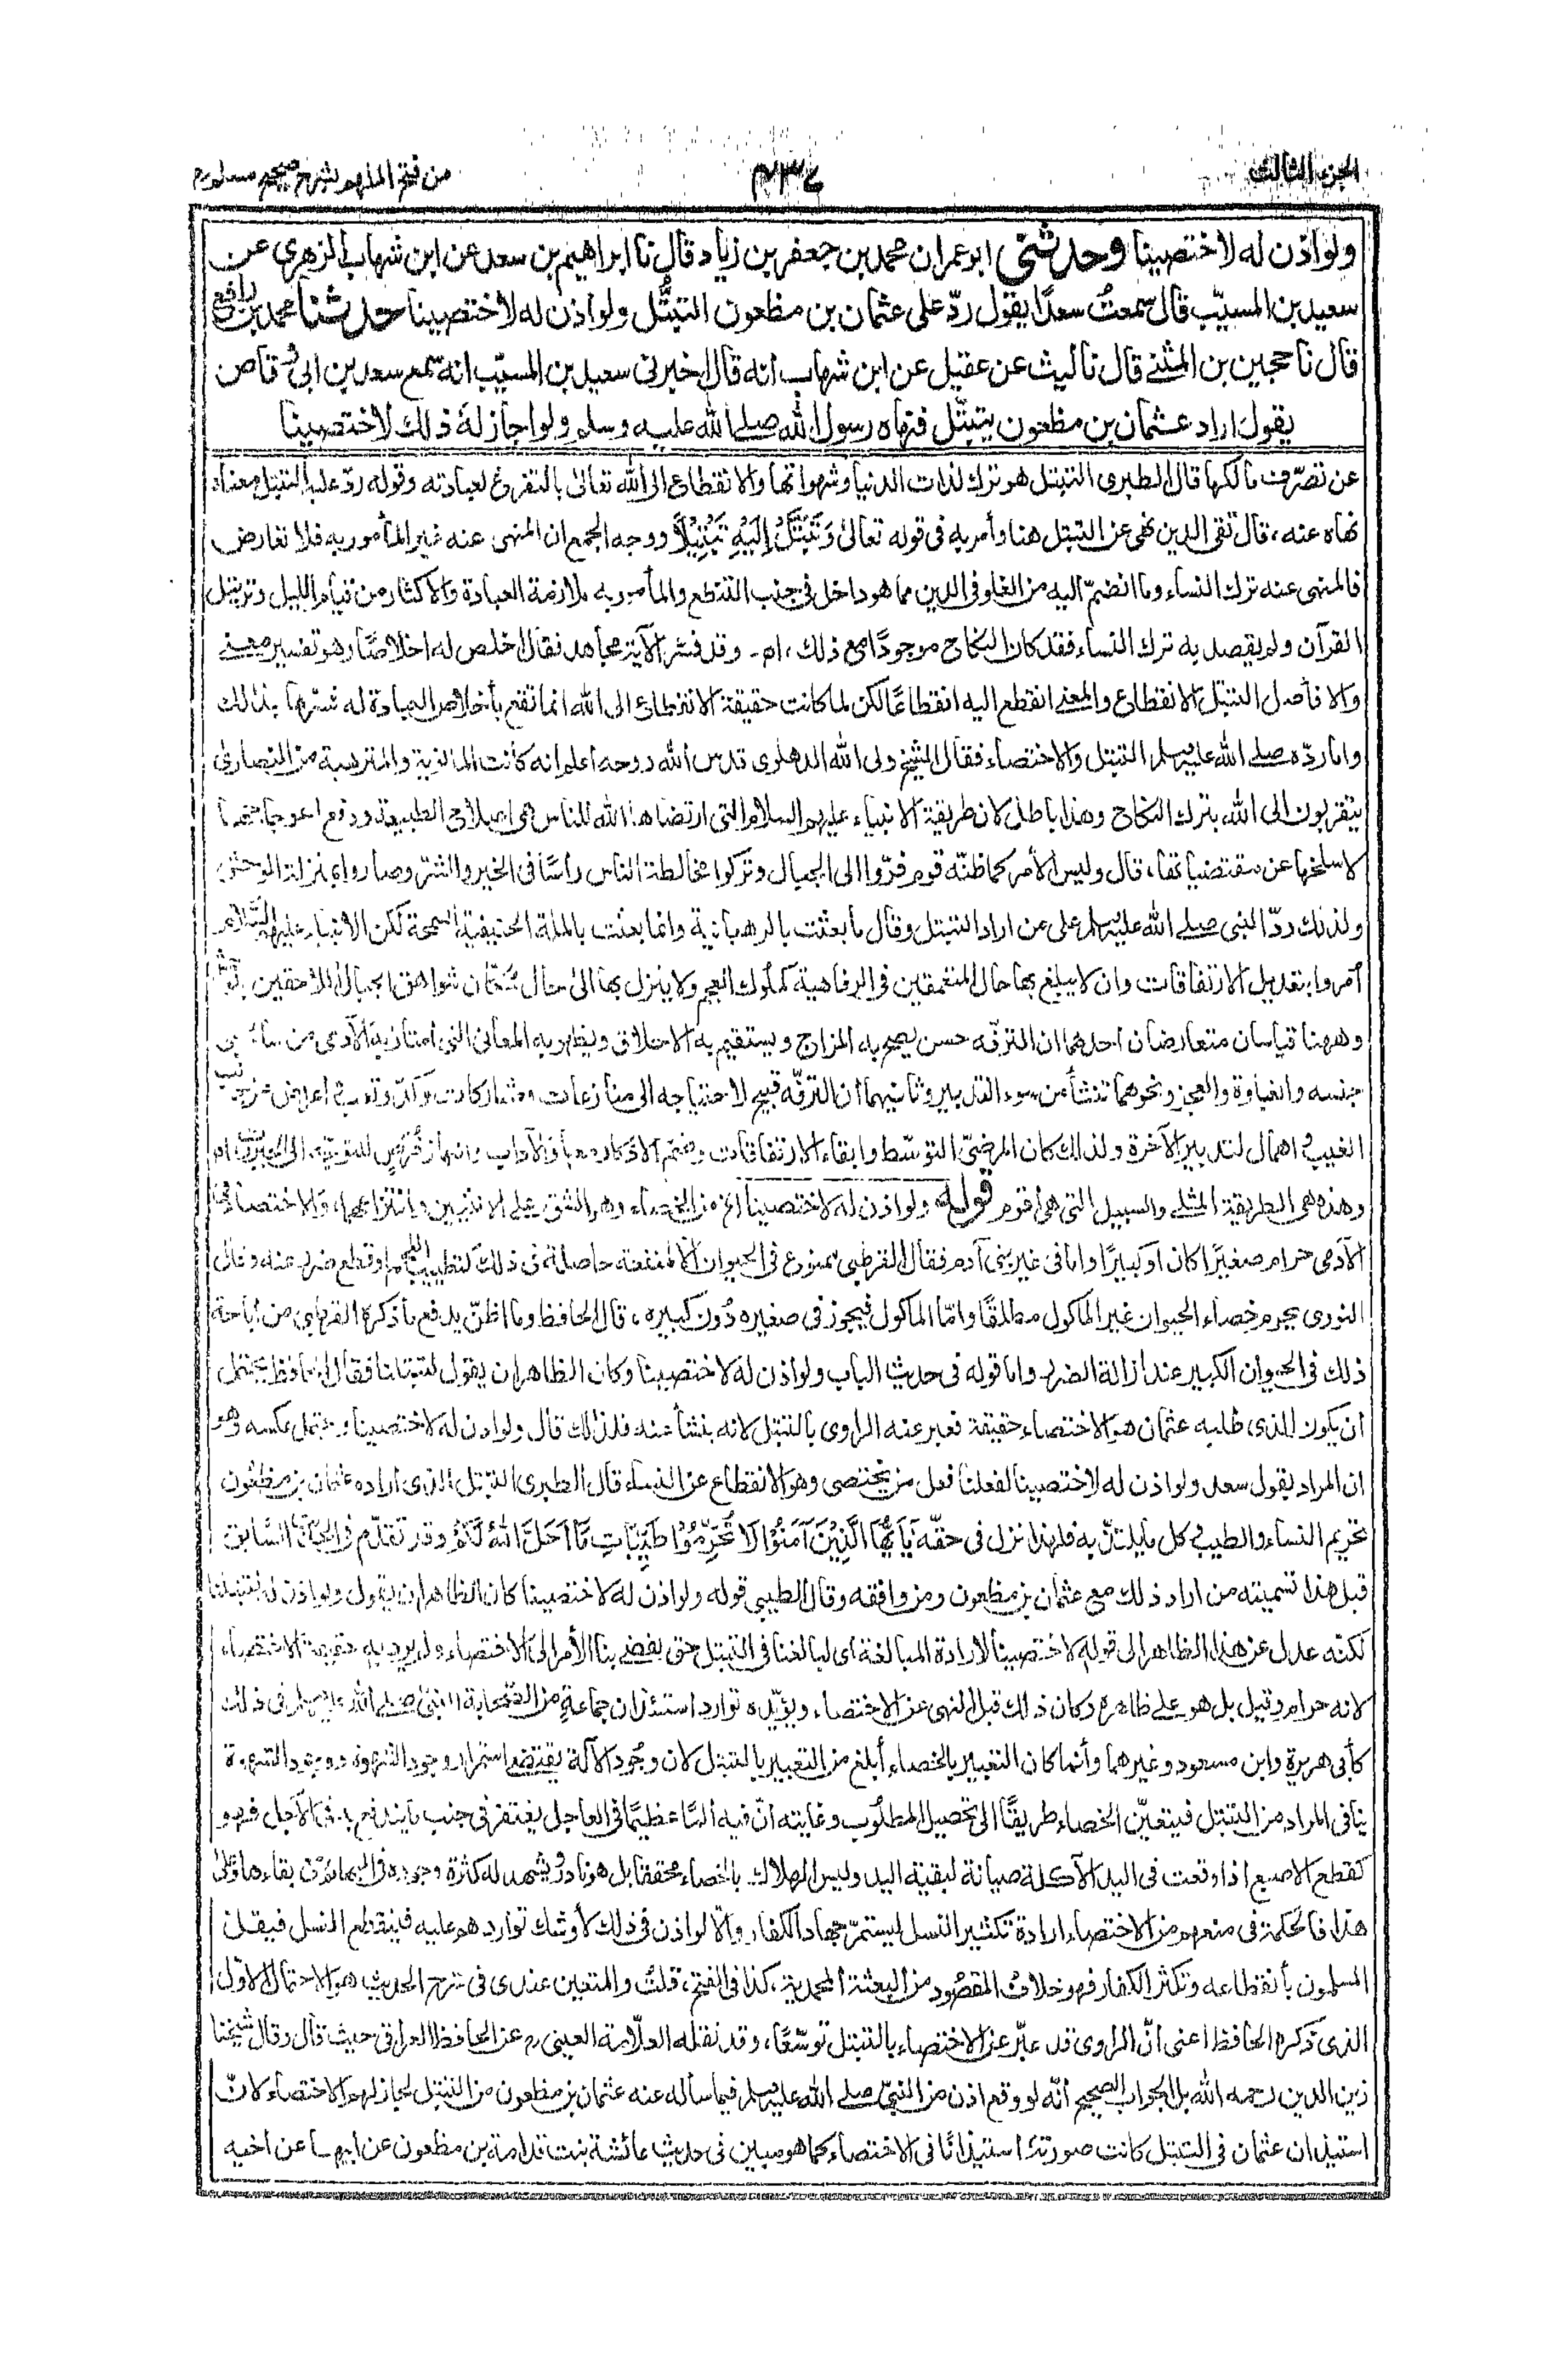 الجزء الثالث
٤٣٧
من فتح الملهم بشرح صحيح مسلم
ولو اذن له لاختصينا وحدثنى ابو عمران محمد بن جعفر بن زياد قال نا ابراهيم بن سعد عن ابن شهاب الزهرى عن
سعيد بن المسيّب قال سمعتُ سعدًا يقول ردّ على عثمان بن مظعون التبتُّل ولو اذن له لاختصينا حدثنا محمد بن رافع
قال نا حجين بن المثنى قال نا ليث عن عقيل عن ابن شهاب انه قال اخبرنى سعيد بن المسيّب انه سمع سعد بن ابى وقاص
يقول اراد عثمان بن مظعون يتبتّل فنهاه رسول الله صلى الله عليه وسلم ولو اجاز له ذلك لاختصينا
عن تصرّف مالكها قال الطبرى التبتل هو ترك لذات الدنيا وشهواتها والانقطاع الى الله تعالى بالتفرغ لعبادته وقوله ردّ عليه التبتل معناه
نهاه عنه، قال تقى الدين نهى عن التبتل هنا وأمر به فى قوله تعالى وَتَبَتَّلْ إِلَيْهِ تَبْتِيْلًا ووجه الجمع ان المنهى عنه غير المأمور به فلا تعارض
فالمنهى عنه ترك النساء وما انضمّ اليه من الغلو فى الدين مما هو داخل فى جنب التنطع والمأمور به ملازمة العبادة والاكثار من قيام الليل وترتيل
القرآن ولم يقصد به ترك النساء فقد كان النكاح موجودًا مع ذلك، اھ ـ وقد فسّر الآية مجاهد فقال اخلص له اخلاصًا وهو تفسير معنى
والا فأصل التبتل الانقطاع والمعنى انقطع اليه انقطاعًا لكن لما كانت حقيقة الانقطاع الى الله انما تقع بأخلاص العبادة له فسّرها بذلك
واما ردّه صلى الله عليه وسلم التبتل والاختصاء فقال الشيخ ولى الله الدهلوى قدس الله روحه اعلم انه كانت المانوية والمترهبة من النصارى
يتقربون الى الله بترك النكاح وهذا باطل لان طريقة الانبياء عليهم السلام التى ارتضاها الله للناس هى اصلاح الطبيعة ودفع اعوجاجها
لا سلخها عن مقتضياتها، قال وليس الأمر كما ظنّه قوم فرّوا الى الجبال وتركوا مخالطة الناس رأسًا فى الخير والشر وصاروا بمنزلة الوحش
ولذلك ردّ النبى صلى الله عليه وسلم على من اراد التبتل وقال ما بعثت بالرهبانية وانما بعثت بالملة الحنيفية السمحة لكن الانبياء عليهم السّلام
أمروا بتعديل الارتفاقات وان لا يبلغ بها حال المتعمقين فى الرفاهية كملوك العجم ولا ينزل بها الى حال سُكّان شواهق الجبال اللاحقين بالوحش
وههنا قياسان متعارضان احدهما ان الترفّه حسن يصح به المزاج ويستقيم به الاخلاق ويظهر به المعانى التى امتاز به الآدمى من سائر بنى
جنسه والغباوة والعجز ونحوهما تنشأ من سوء التدبير وثانيهما ان الترفّه قبيح لاحتياجه الى منازعات ومشاركات وكدّ وتعب واعراض عن جانب
الغيب واهمال لتدبير الآخرة ولذلك كان المرضىّ التوسّط وابقاء الارتفاقات وضم الاذكار معها والآداب وانتهاز فُرَصٍ للتوجّه الى الجبروت اھ
وهذه هى الطريقة المثلى والسبيل التى هى أقوم قوله ولو اذن له لاختصينا الخ من الخصاء وهو الشق على الانثيين وانتزاعهما، والاختصاء فى
الآدمى حرام صغيرًا كان او كبيرًا واما فى غير بنى آدم فقال القرطبى ممنوع فى الحيوان الا لمنفعة حاصلة فى ذلك كتطييب اللحم او قطع ضرر عنه وقال
النووى يحرم خصاء الحيوان غير المأكول مطلقًا وامّا المأكول فيجوز فى صغيره دُون كبيره، قال الحافظ وما اظنّ يدفع ما ذكره القرطبى من اباحة
ذلك فى الحيوان الكبير عند ازالة الضرر واما قوله فى حديث الباب ولو اذن له لاختصينا وكان الظاهر ان يقول لتبتلنا فقال الحافظ يحتمل
ان يكون الذى طلبه عثمان هو الاختصاء حقيقة فعبر عنه الراوى بالتبتل لانه ينشأ عنه فلذلك قال ولو اذن له لاختصينا ويحتمل عكسه وهو
ان المراد يقول سعد ولو اذن له لاختصينا لفعلنا فعل من يختصى وهو الانقطاع عن النساء قال الطبرى التبتل الذى اراده عثمان بن مظعون
تحريم النساء والطيب وكل ما يلتذّ به فلهذا نزل فى حقّه يَا أَيُّهَا الَّذِيْنَ آمَنُوْا لَا تُحَرِّمُوْا طَيِّبَاتِ مَا اَحَلَّ اللهُ لَكُمْ وقد تقدّم فى الباب السّابق
قبل هذا تسميته من اراد ذلك مع عثمان بن مظعون ومن وافقه وقال الطيبى قوله ولو اذن له لاختصينا كان الظاهر ان يقول ولو اذن له لتبتلنا
لكنّه عدل عن هذا الظاهر الى قوله لاختصينا لارادة المبالغة اى لبالغنا فى التبتل حتى يفضى بنا الأمر الى الاختصاء ولم يرد به حقيقة الاختصاء
لانه حرام وقيل بل هو على ظاهره وكان ذلك قبل النهى عن الاختصاء ويؤيّده توارد استئذان جماعةٍ من الصّحابة النبىّ صلى الله عليه وسلم فى ذلك
كأبى هريرة وابن مسعود وغيرهما وأنما كان التعبير بالخصاء أبلغ من التعبير بالتبتل لان وجُود الآلة يقتضى استمرار وجود الشهوة ووجود الشهوة
ينافى المراد من التبتل فيتعيّن الخصاء طريقًا الى تحصيل المطلُوب وغايته انّ فيه ألمًا عظيمًا فى العاجل يغتفر فى جنب ما يندفع به فى الآجل فهو
كقطع الاصبع اذا وقعت فى اليد الآكلة صيانة لبقية اليد وليس الهلاك بالخصاء محققا بل هو نادرٌ ويشهد له كثرة وجوده فى البهائم مع بقاءها وعلى
هذا فالحكمة فى منعهم من الاختصاء ارادة تكثير النسل ليستمرّ جهاد الكفار والّا لو اذن فى ذلك لأوشك تواردهم عليه فينقطع النسل فيقل
المسلمون بأنقطاعه وتكثر الكفار فهو خلافُ المقصُود من البعثة المحمدية، كذا فى الفتح، قلتُ والمتعين عندى فى شرح الحديث هو الاحتمال الاوّل
الذى ذكره الحافظ اعنى انّ الراوى قد عبّر عن الاختصاء بالتبتل توسّعًا، وقد نقله العلّامة العينى رح عن الحافظ العراقى حيث قال وقال شيخنا
زين الدين رحمه الله بل الجواب الصحيح أنّه لو وقع اذن من النبىّ صلى الله عليه وسلم فيما سأله عنه عثمان بن مظعون من التبتل لجاز لهم الاختصاء لانّ
استيذان عثمان فى التبتل كانت صورته استيذانًا فى الاختصاء كما هو مبين فى حديث عائشة بنت قدامة بن مظعون عن ابيها عن اخيه